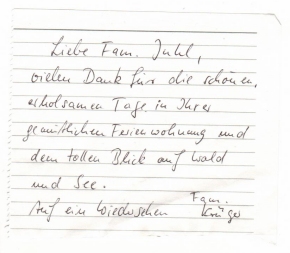 Liebe Fam. Juhl,
vielen Dank für die schönen,
erholsamen Tage in Ihrer
gemütlichen Ferienwohnung und
dem tollen Blick auf Wald
und See.
Auf ein Wiedersehen Fam.
Krüger